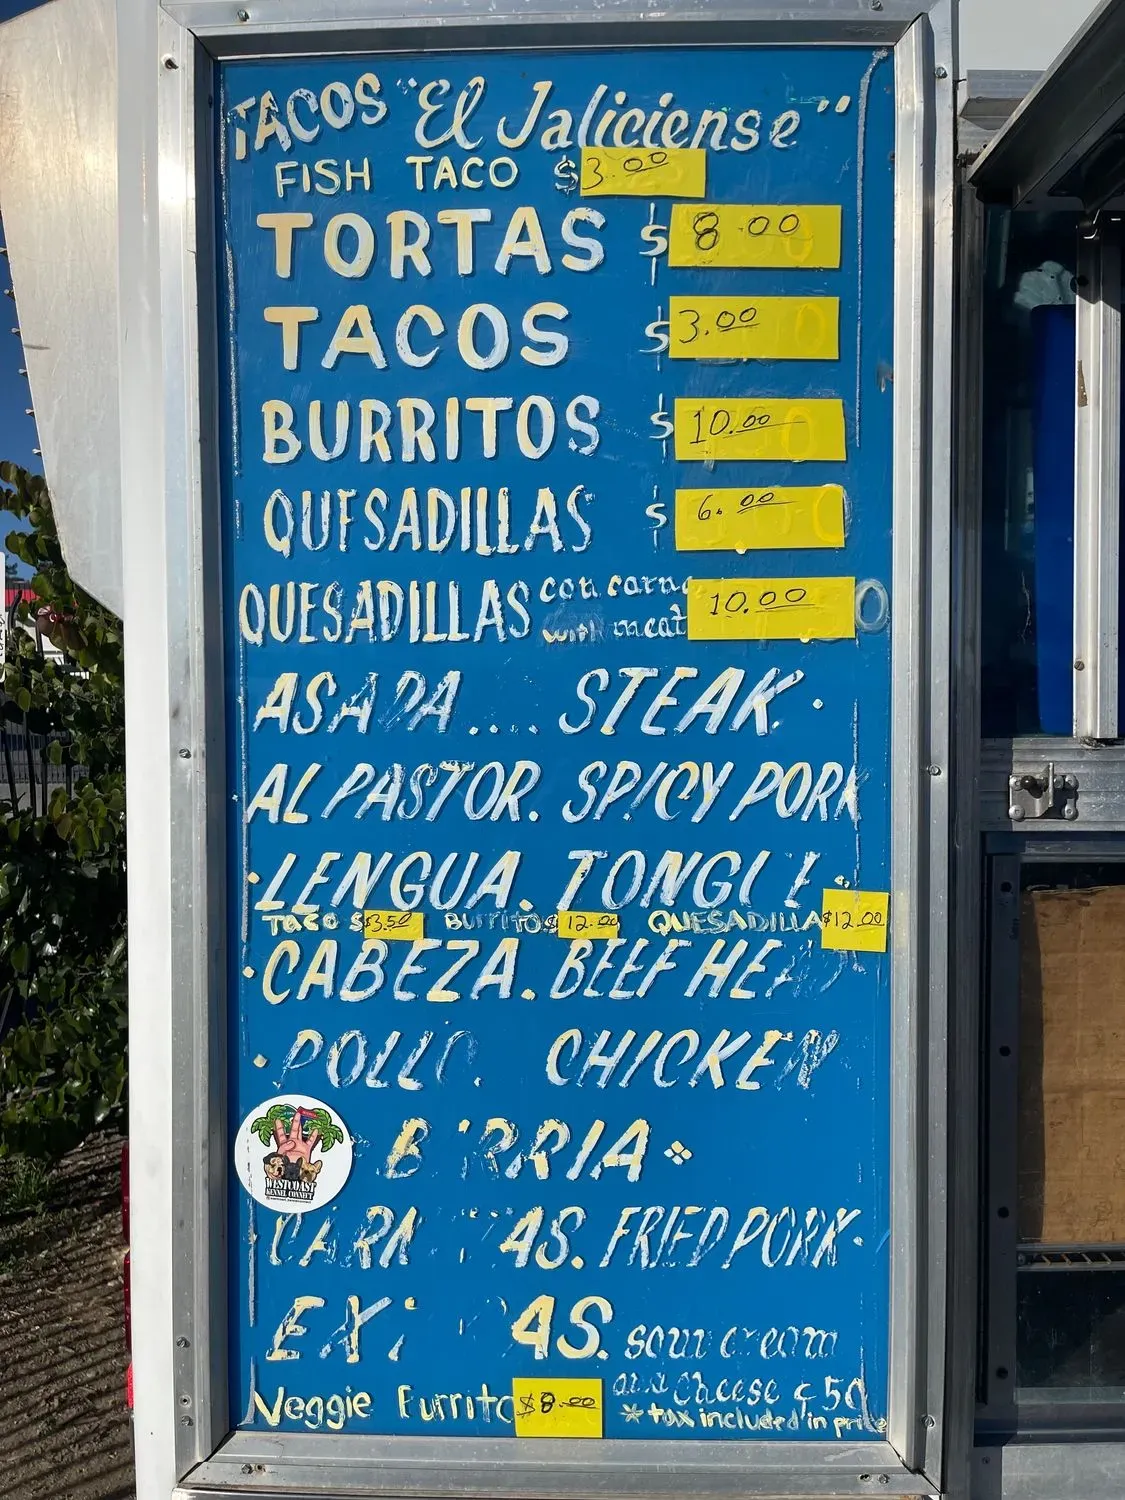 TACOS "El Jaliciense"
FISH TACO $3.00
TORTAS $8.00
TACOS $3.00
BURRITOS $10.00
QUESADILLAS $6.00
QUESADILLAS con carne 10.00
with meat
ASADA.... STEAK.
AL PASTOR. SPICY PORK
·LENGUA. TONGUE.
TACO $3.50 BURRITO $12.00 QUESADILLA $12.00
·CABEZA. BEEF HEAD
·POLLO. CHICKEN
BIRRIA
WESTCOAST
KENNEL CONNECT
CARNITAS. FRIED PORK.
EXTRAS. sour cream
and cheese ¢50
Veggie Burrito $8.00
*tax included in price